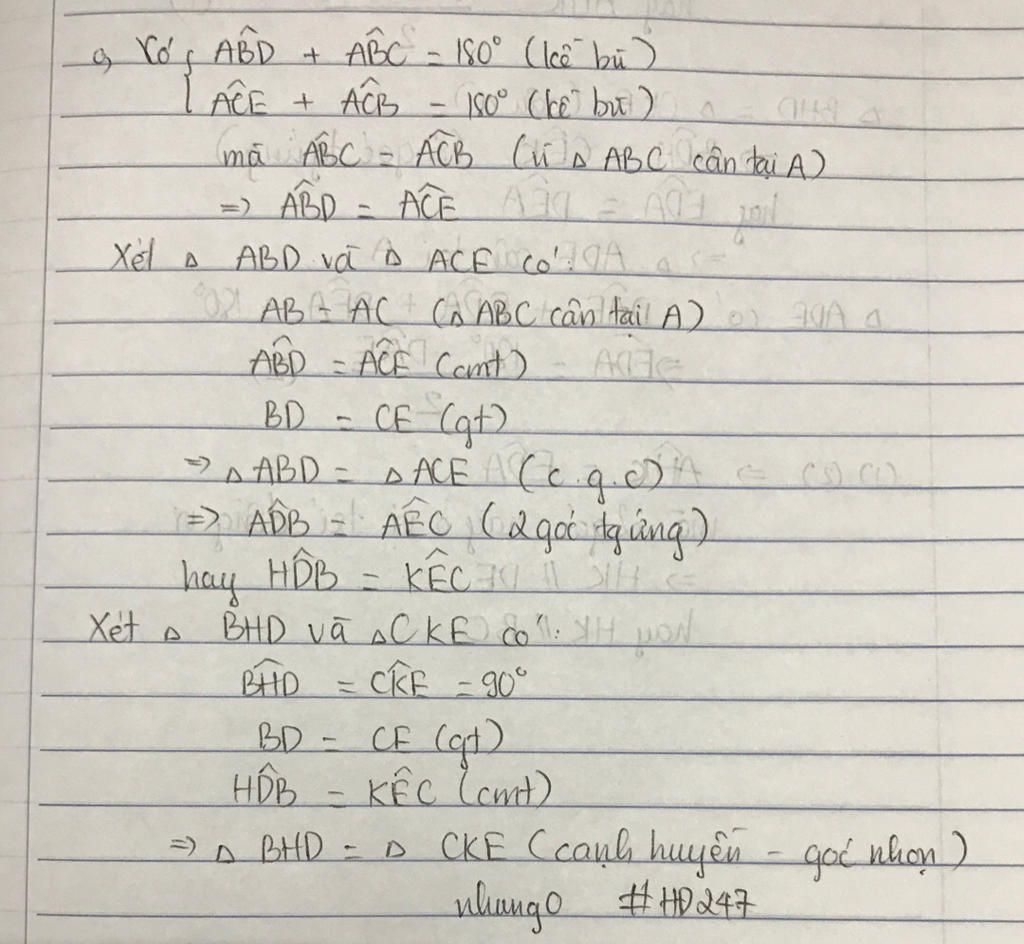 a, Có { AB̂D + AB̂C = 180° (kề bù)
AĈE + AĈB = 180° (kề bù)
mà AB̂C = AĈB (vì △ ABC cân tại A)
=> AB̂D = AĈE
Xét △ ABD và △ ACE có:
AB = AC (△ ABC cân tại A)
AB̂D = AĈE (cmt)
BD = CE (gt)
=> △ ABD = △ ACE (c.g.c)
=> AD̂B = AÊC (2 góc tg ứng)
hay HD̂B = KÊC
Xét △ BHD và △ CKE có:
BĤD = CK̂E = 90°
BD = CE (gt)
HD̂B = KÊC (cmt)
=> △ BHD = △ CKE (cạnh huyền - góc nhọn)
nhung0 #HD247